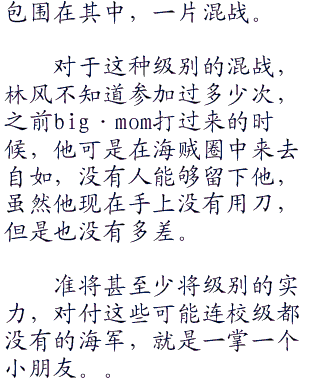 包围在其中，一片混战。
对于这种级别的混战，
林风不知道参加过多少次，
之前big·mom打过来的时
候，他可是在海贼圈中来去
自如，没有人能够留下他，
虽然他现在手上没有用刀，
但是也没有多差。
准将甚至少将级别的实
力，对付这些可能连校级都
没有的海军，就是一掌一个
小朋友。。